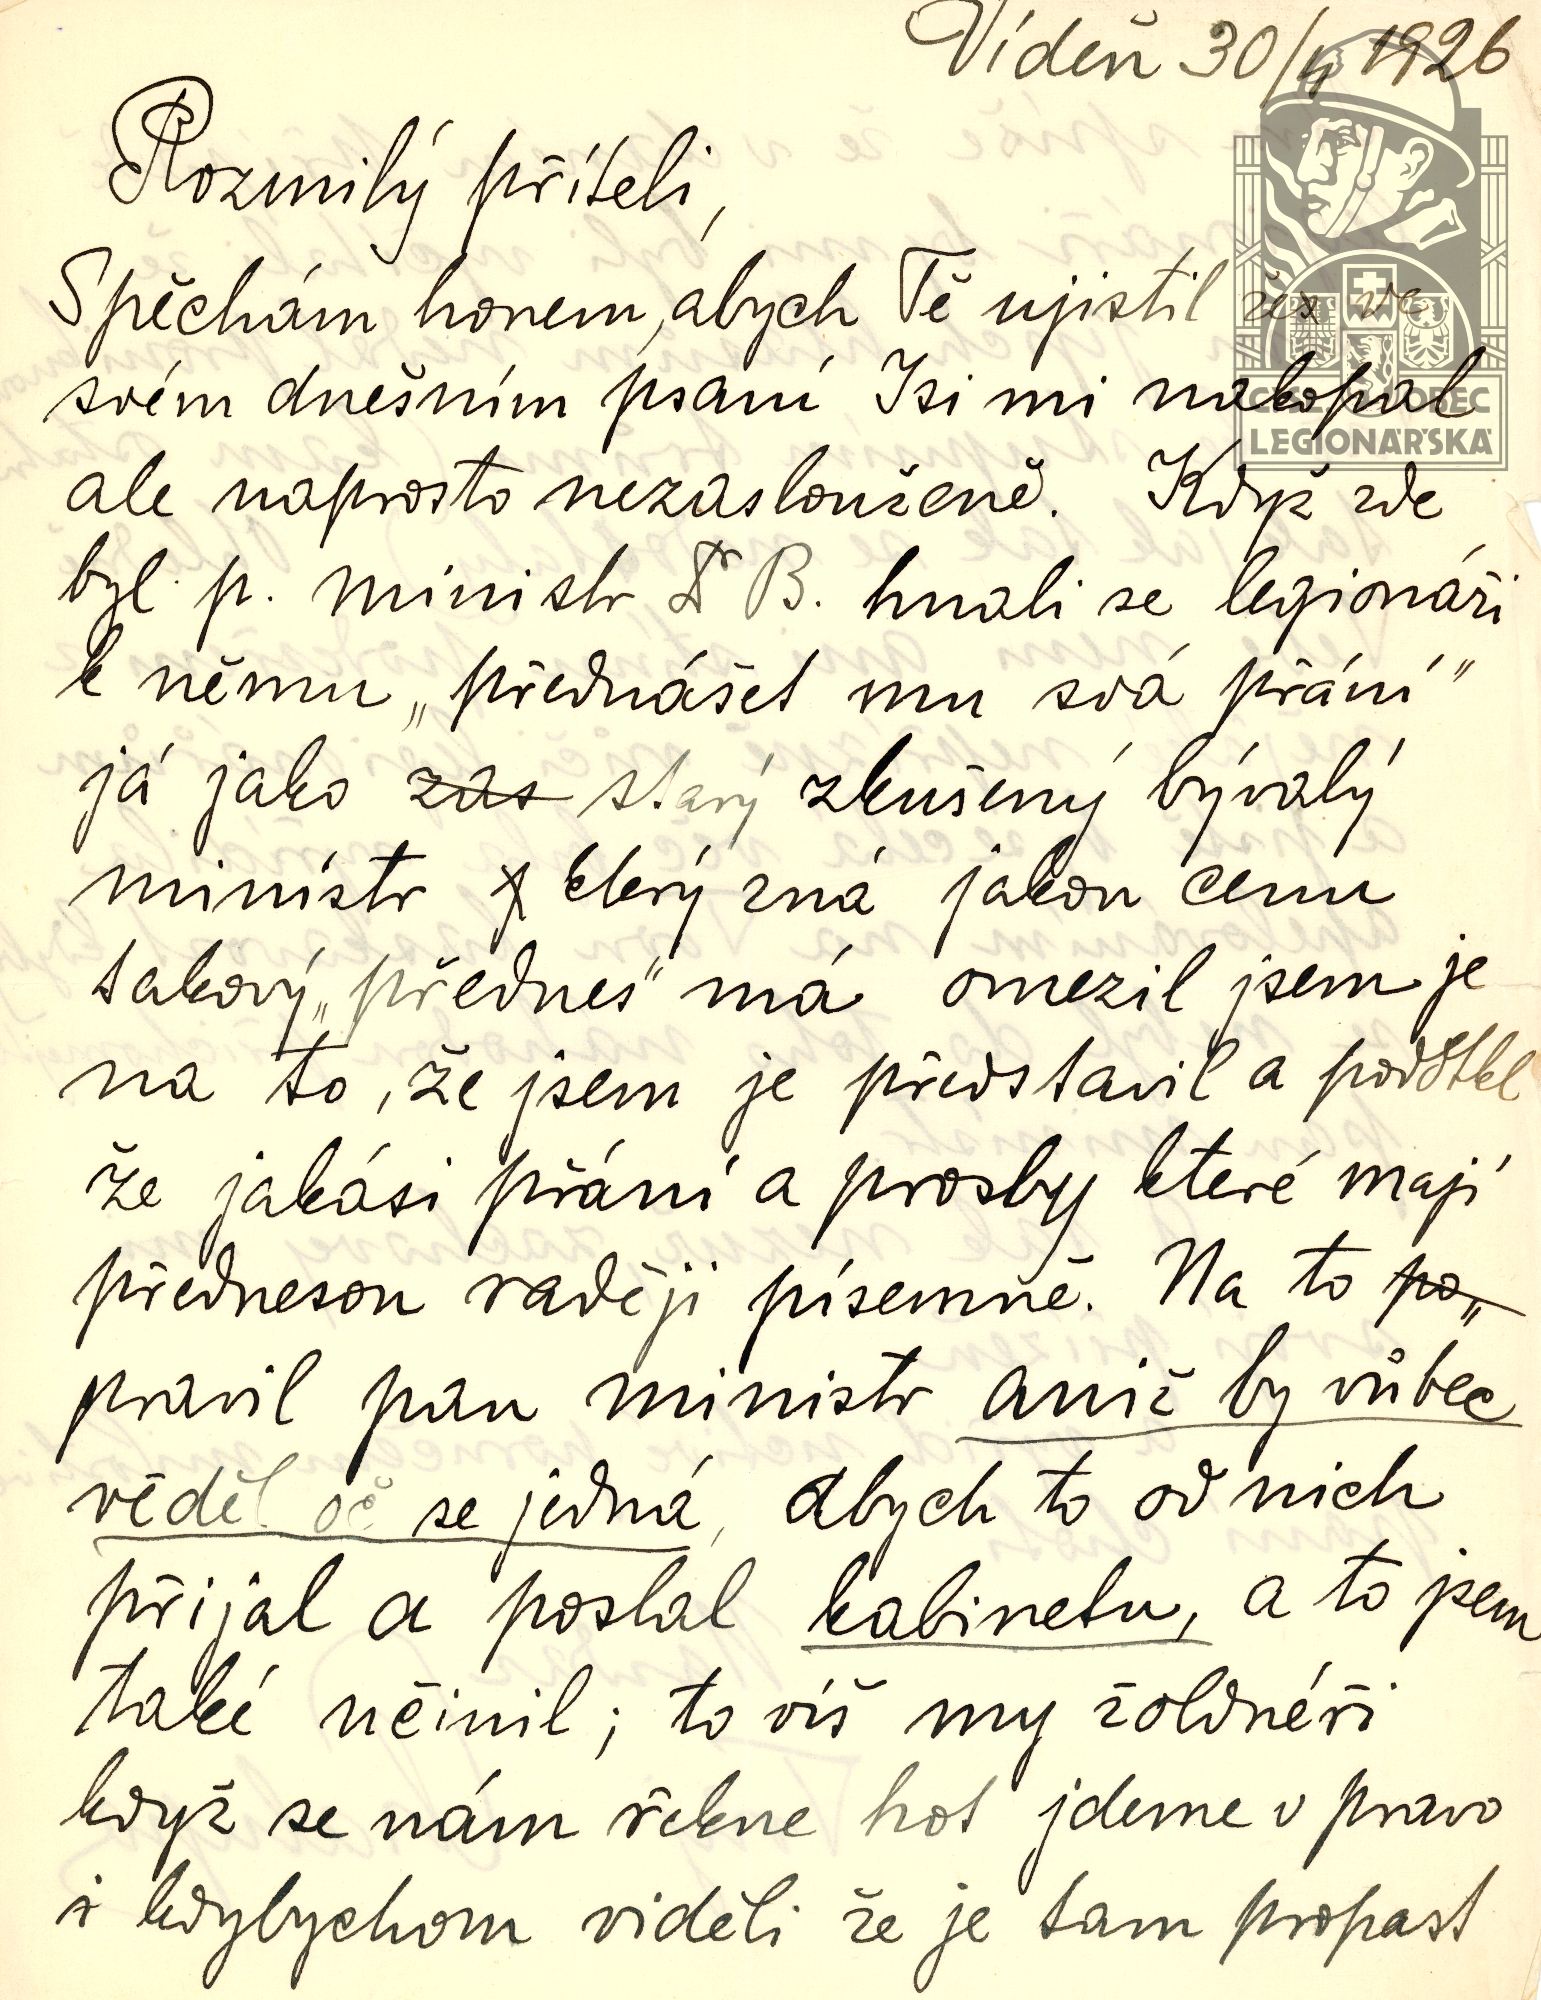 Vídeň 30/4 1926
Rozmilý příteli,
Spěchám honem, abych Tě ujistil žes ve
svém dnešním psaní Isi mi nakopal
ale naprosto nezaslouženě. Když zde
byl p. ministr Dr B. hnali se legionáři
k němu „přednášet mu svá přání"
já jako zas starý zkušený bývalý
ministr který zná jakou cenu
takový „přednes" má omezil jsem je
na to, že jsem je představil a podotkl
že jakási přání a prosby které mají
přednesou raději písemně. Na to po„
pravil pan ministr aniž by vůbec
věděl oč se jedná, abych to od nich
přijal a poslal kabinetu, a to jsem
také učinil; to víš my žoldnéři
když se nám řekne hot jdeme v pravo
i kdybychom viděli že je tam propast
ČESKOSLOVENSKÁ OBEC
LEGIONÁŘSKÁ